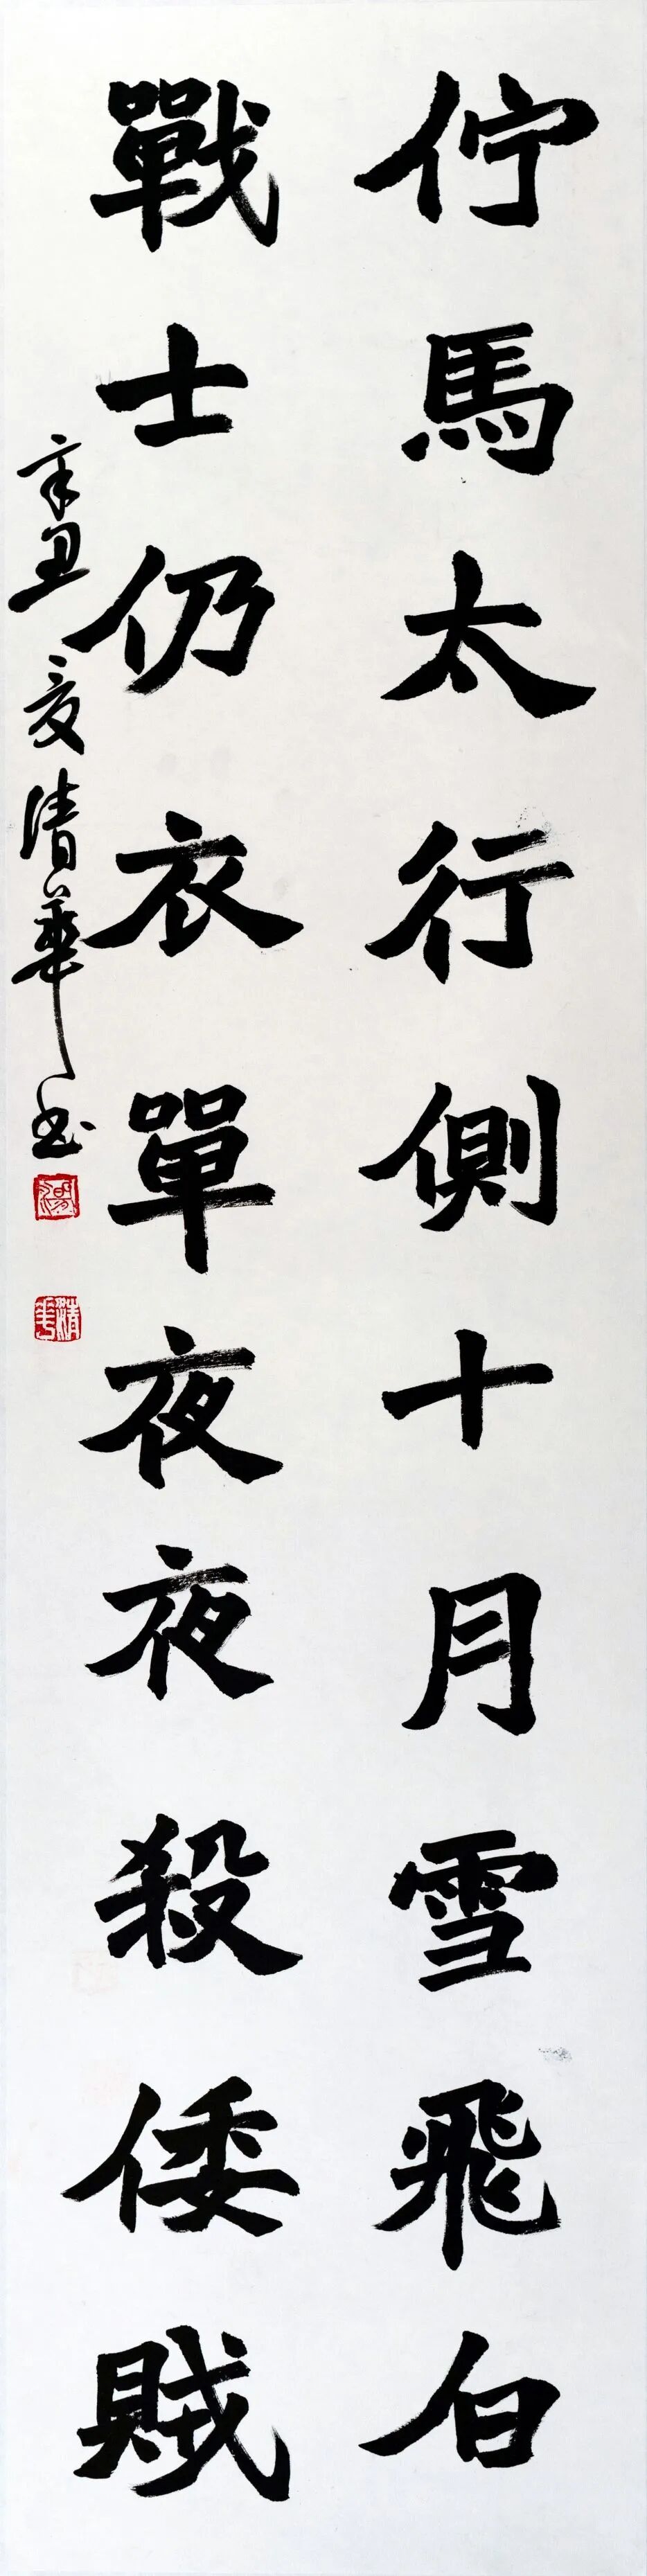 佇馬太行側十月雪飛白
戰士仍衣單夜夜殺倭賊
辛丑夏清華书
清華